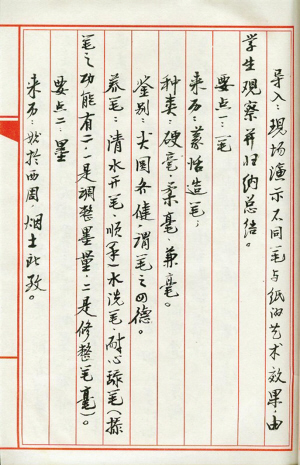 导入：现场演示不同毛与纸的艺术效果，由
学生观察并归纳总结。
要点一：毛
来历：蒙恬造毛；
种类：硬毫、柔毫、兼毫。
鉴别：尖圆齐健，谓毛之四德。
养毛：清水开毛，顺（手）水洗毛，耐心
毛之功能有二：一是调整墨量，二是修整毛毫）。
要点二：墨
来历：始于西周，烟土